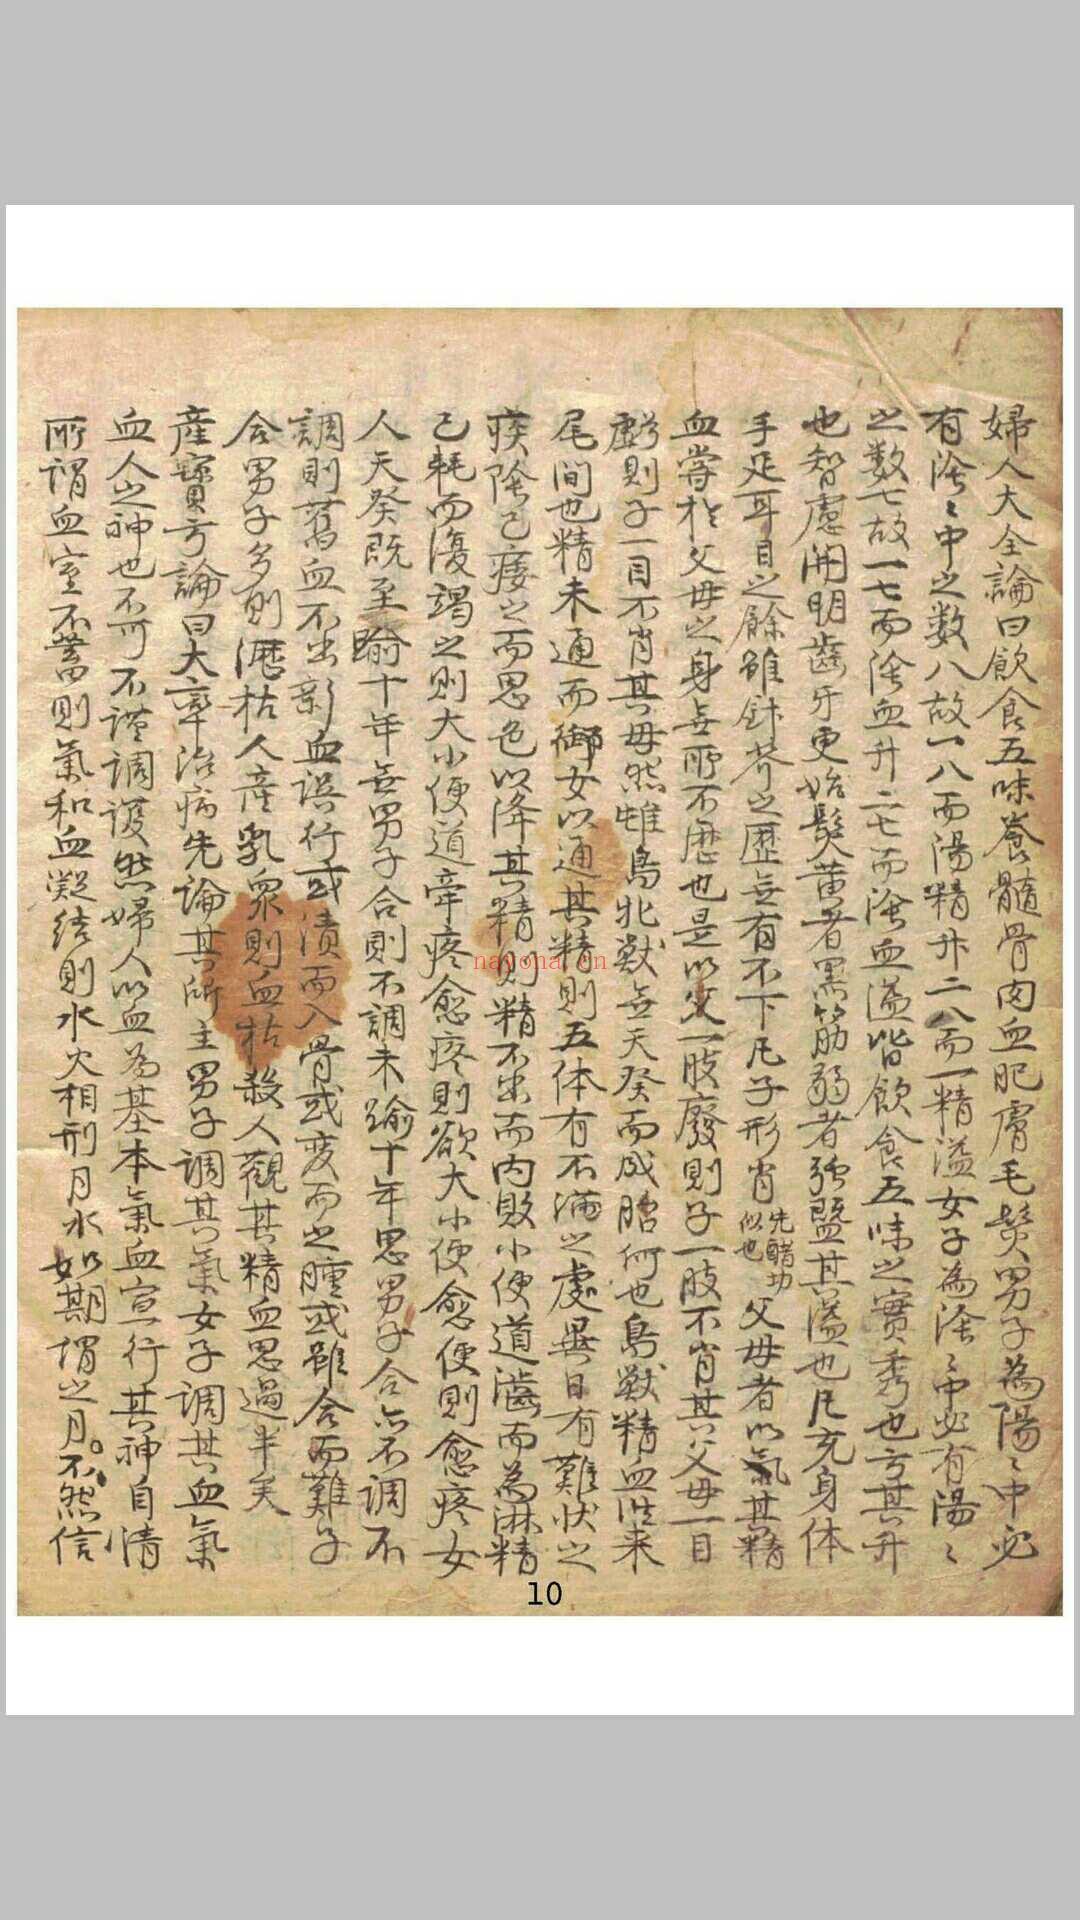 婦人大全論曰飲食五味養髓骨肉血肥膚毛髮男子為陽〻中必
有陰〻中之数八故一八而陽精升二八而一精溢女子為陰〻中必有陽〻
之数七故一七而陰血升二七而陰血溢皆飲食五味之實秀也方其升
也智慮開明齒牙更始髮黃者黑筋弱者強曁其溢也凡充身体
手足耳目之餘雖針芥之歷無有不下凡子形肖似也先醋功父母者以氣其精
血嘗於父母之身無所不歷也是以父一肢廢則子一肢不肖其父母一目
虧則子一目不肖其母然雌鳥牝獣無天癸而成胎何也鳥獣精血徃来
尾間也精未通而御女以通其精則五体有不滿之處異日有難状之
疾陰已痿之而思色以降其精則精不出而內敗小便道澁而為淋精
已耗而復竭之則大小便道牽疼愈疼則欲大小便愈便則愈疼女
人天癸既至踰十年無男子合則不調未踰十年思男子合亦不調不
調則舊血不出新血誤行或漬而入骨或変而之腫或雖合而難子
合男子多則瀝枯人産乳衆則血枯殺人觀其精血思過半矣
産寶方論曰大率治病先論其所主男子調其氣女子調其血氣
血人之神也不可不謹調護然婦人以血為基本氣血宣行其神自清
所謂血室不蓄則氣和血凝結則水火相刑月水如期謂之月。不然信
nayona.cn
10